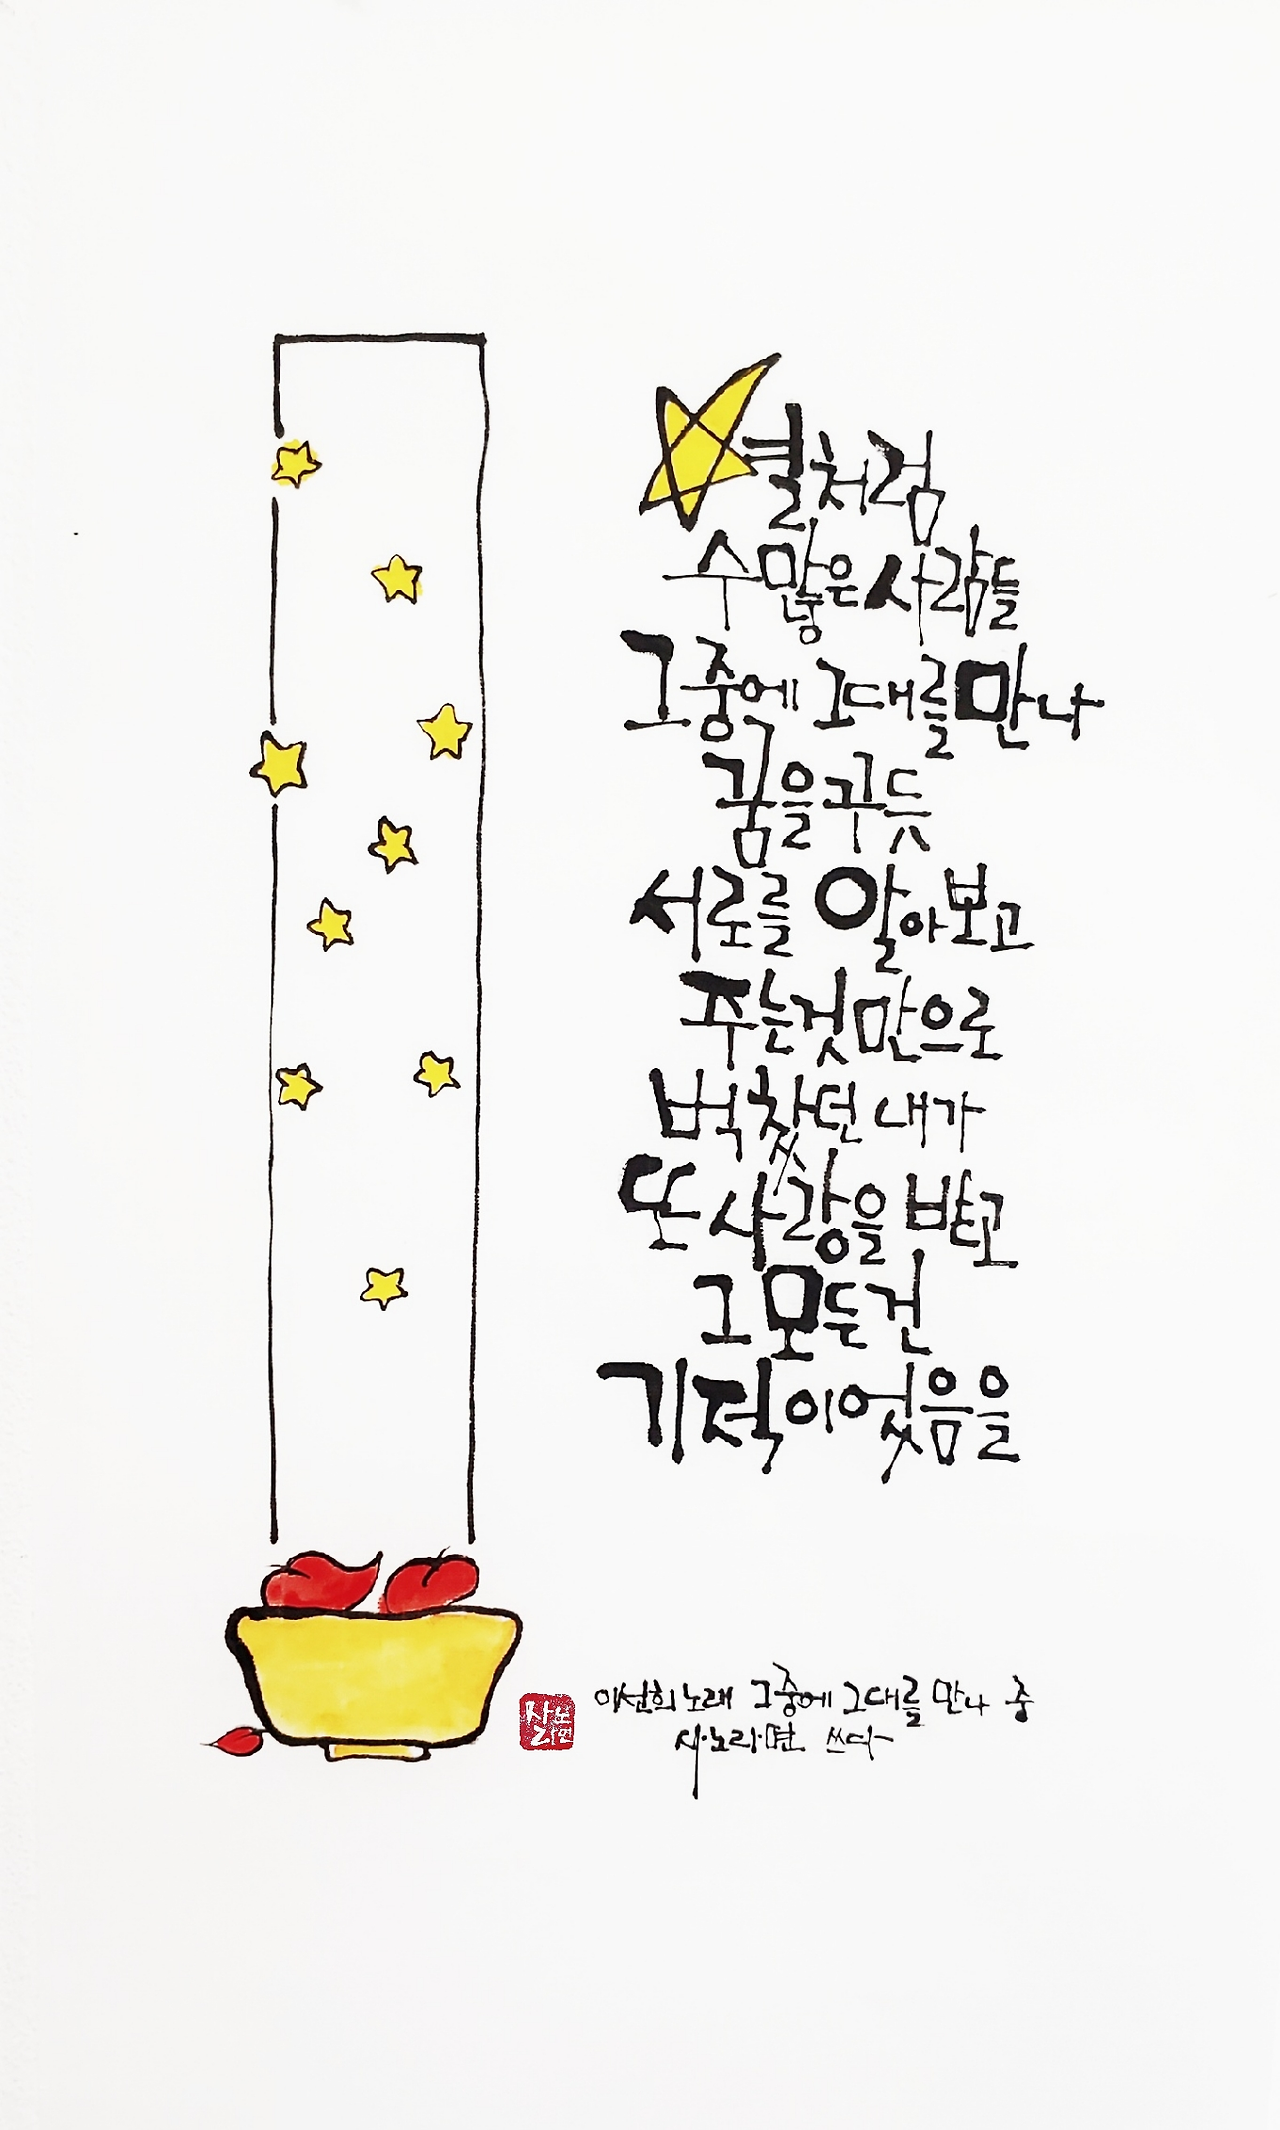 별처럼
수많은 사람들
그중에 그대를 만나
꿈을 꾸듯
서로를 알아보고
주는것만으로
벅찼던 내가
또 사랑을 받고
그 모든건
기적이었음을
이선희 노래 그중에 그대를 만나 중
사·노·라·면 쓰다